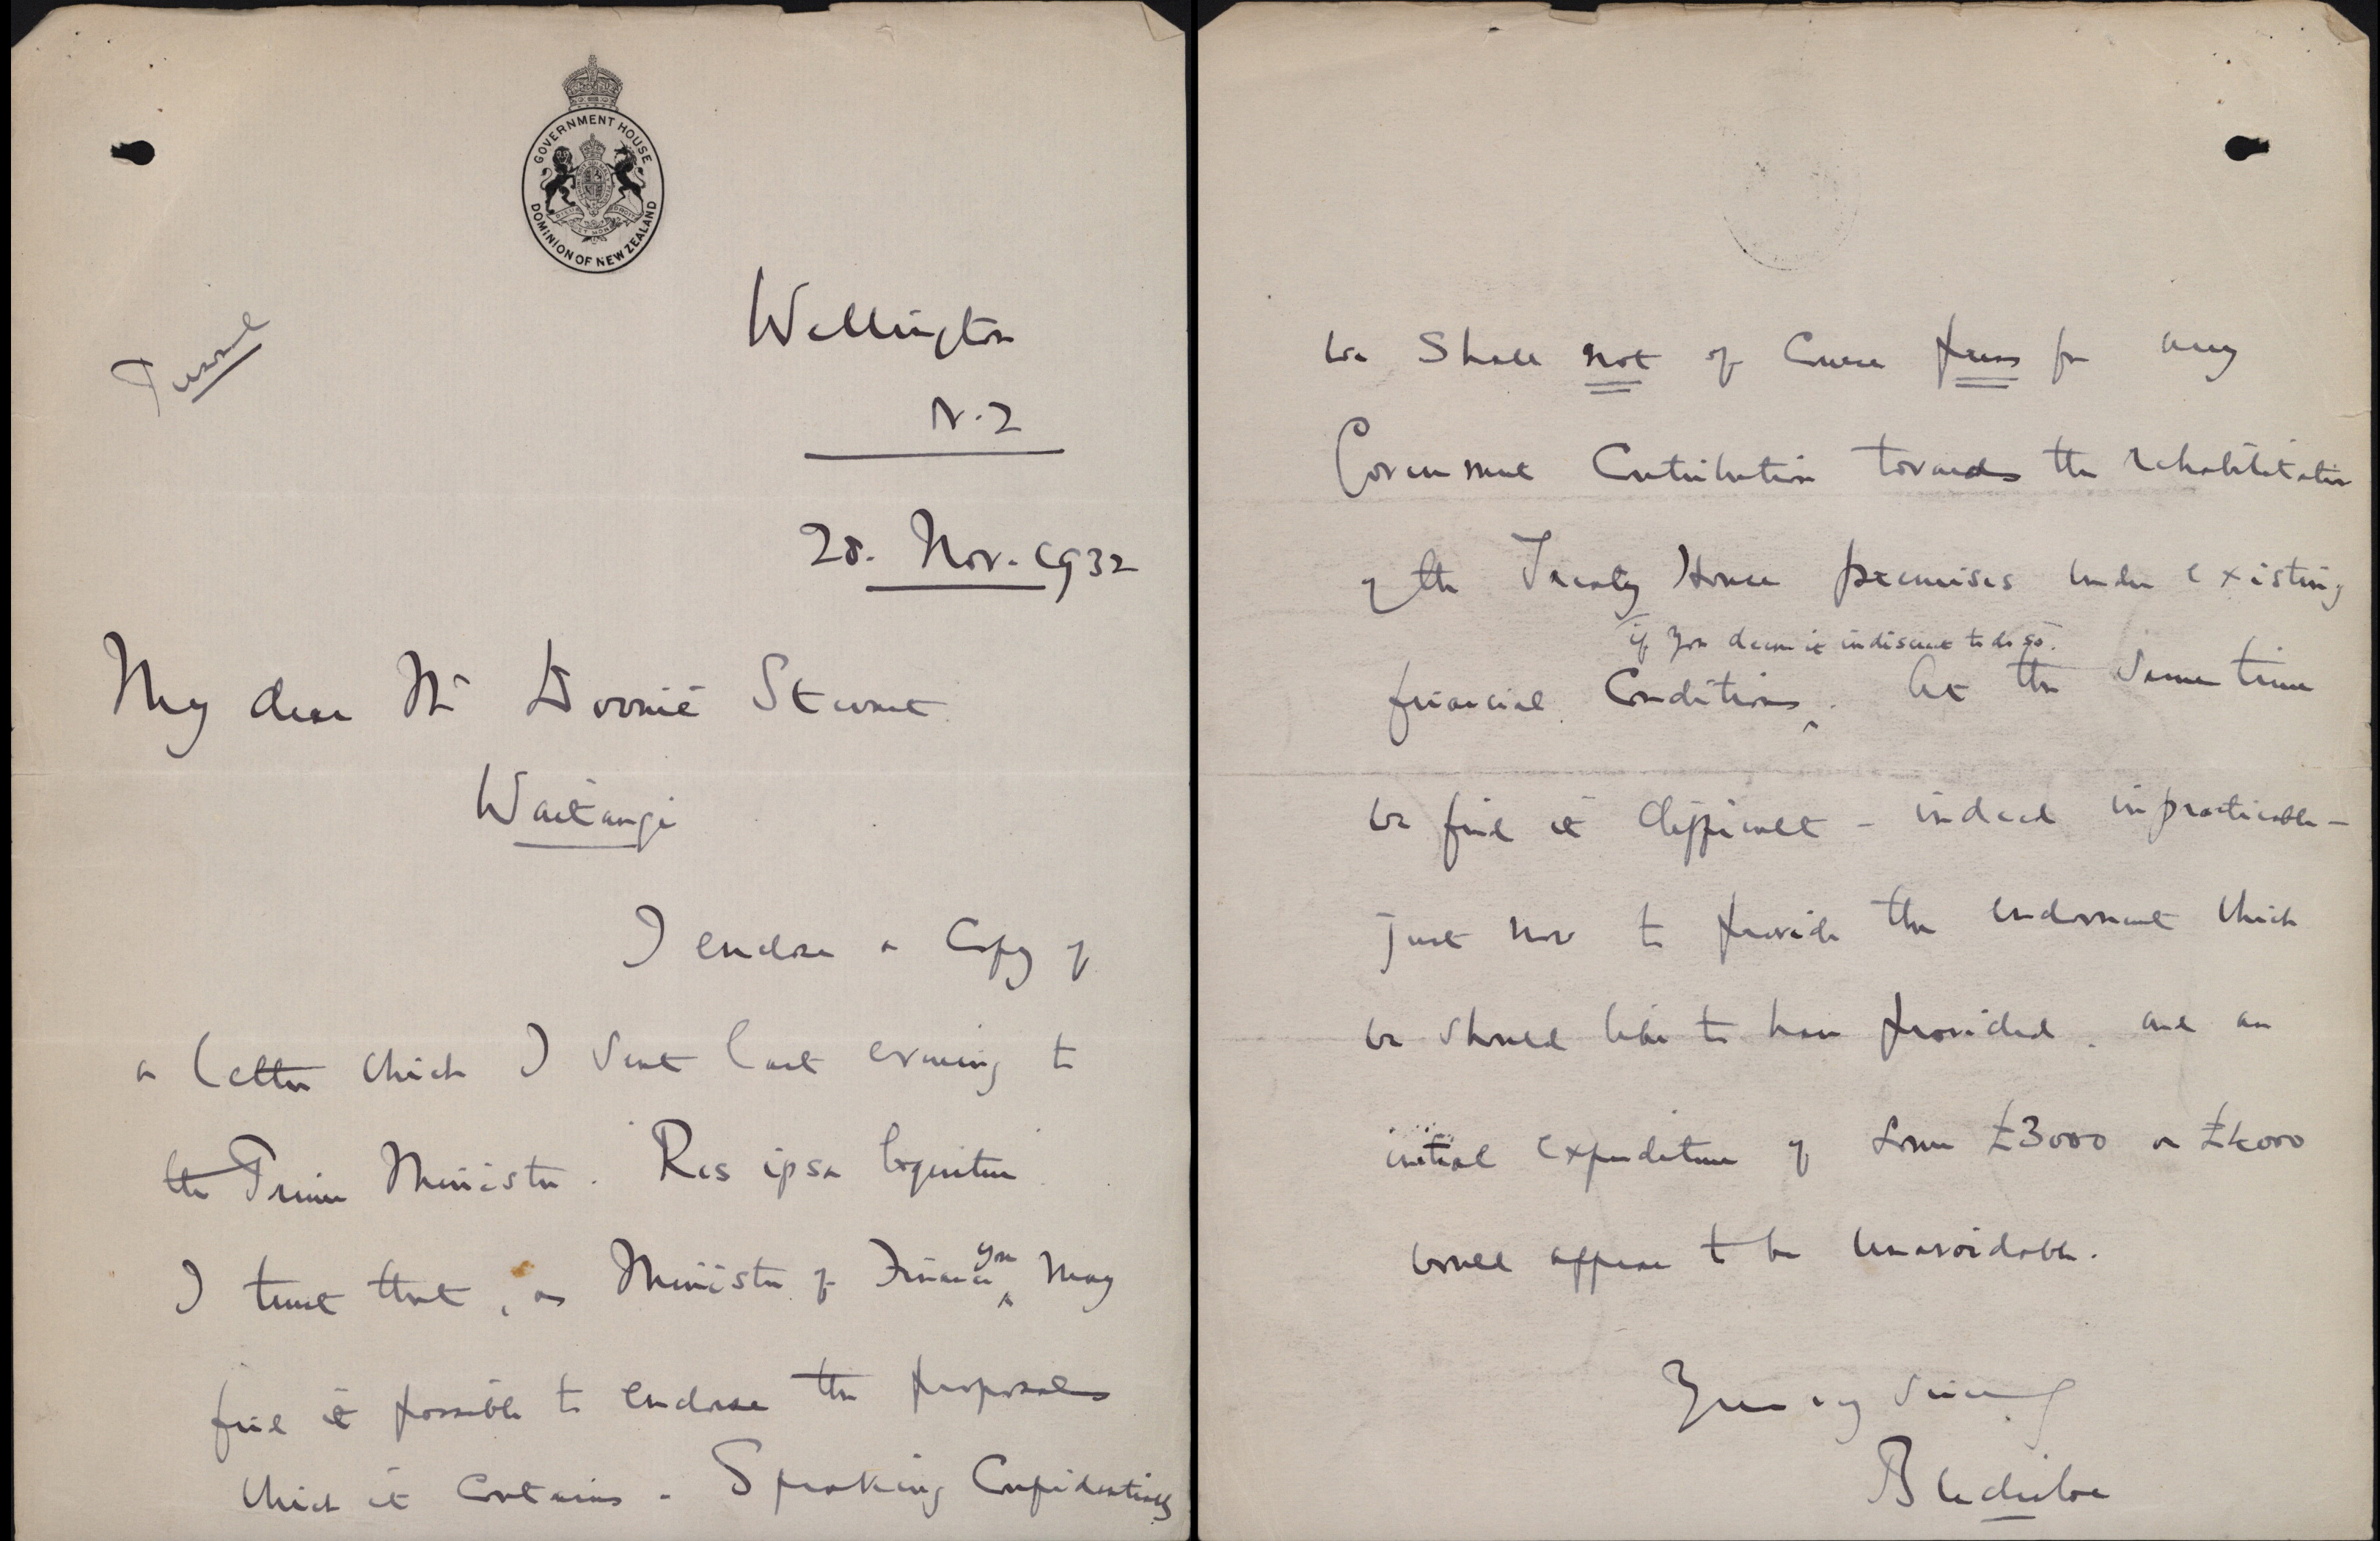 GOVERNMENT HOUSE
DOMINION OF NEW ZEALAND
Personal
Wellington
N.Z
28. Nov. 1932
My dear Mr Downie Stewart
Waitangi
I enclose a copy of
a letter which I sent last evening to
the Prime Minister. Res ipsa loquitur
I trust that, as Minister of Finance you may
find it possible to endorse the proposals
which it contains. Speaking confidentially
we shall not of course press for any
Government contribution towards the rehabilitation
of the Treaty House premises under existing
if you deem it indiscreet to do so.
financial conditions. At the same time
we find it difficult - indeed impracticable -
just now to provide the endowment which
we should like to have provided, and an
initial expenditure of some £3000 or £4000
would appear to be unavoidable.
Yours very sincerely
Bledisloe